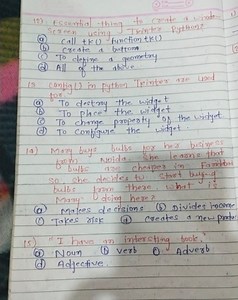 12) Essential thing to create a window
Screen using Tkinter Python?
a) Call tk() function tk()
b) Create a button
c) To define a geometry
d) All of the above
13 config() in Python Tkinter are used
for
a) To destroy the widget
b) To place the widget
c) To change property of the widget
d) To configure the widget.
14) Mary buys bulbs for her business
from Noida. She learns that
bulbs are cheaper in Faridabad
so she decides to start buying
bulbs from there. What is
Mary doing here?
a) Makes decisions b) Divides income
c) Takes risk d) Creates a new product
15) "I have an interesting book,"
a) Noun b) verb c) Adverb
d) Adjective.